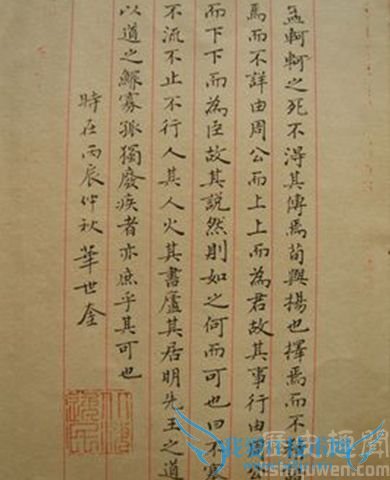 孟軻軻之死不得其傳焉荀與揚也擇焉而不精語
焉而不詳由周公而上上而為君故其事行由周公
而下下而為臣故其說然則如之何而可也曰不塞
不流不止不行人其人火其書廬其居明先王之道
以道之鰥寡孤獨廢疾者亦庶乎其可也
時在丙辰仲秋華世奎
歷史趣聞
lishiquwen.com